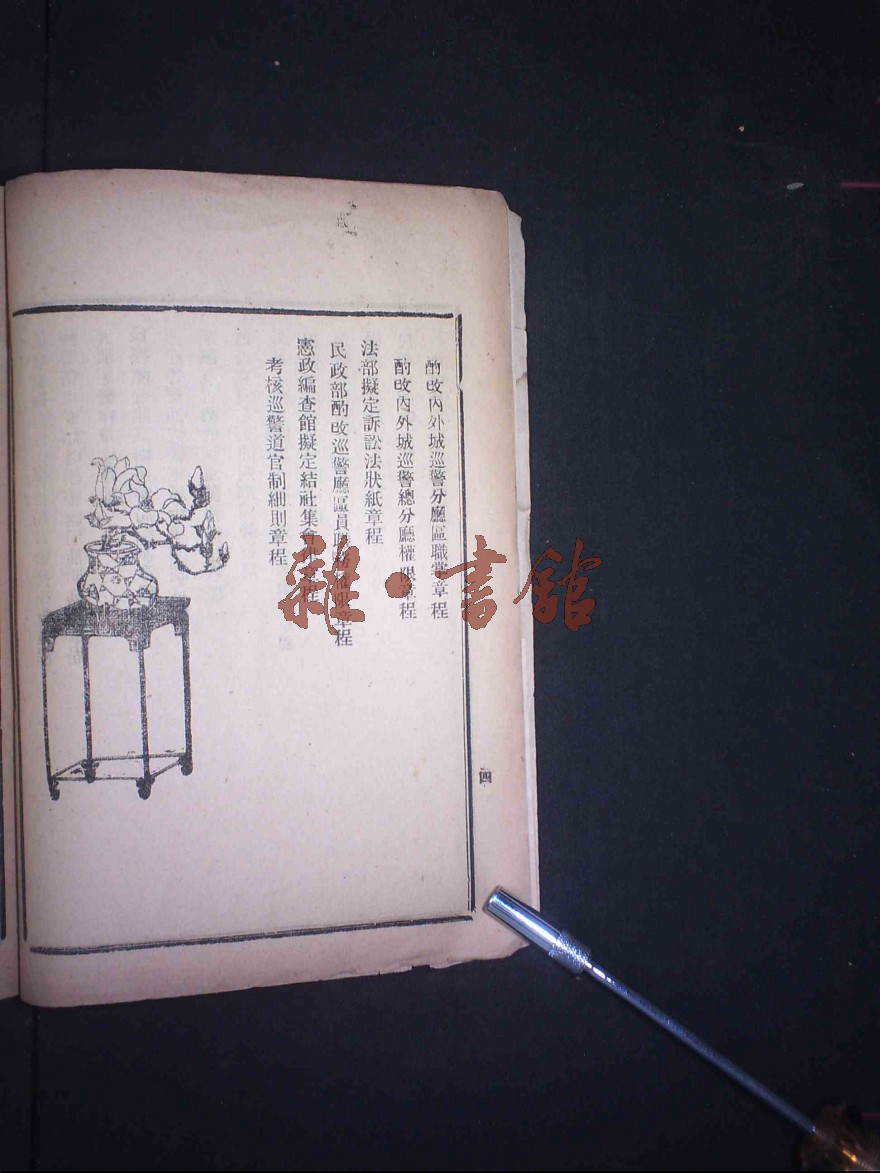 酌改內外城巡警分廳區職掌章程
酌改內外城巡警總分廳權限章程
法部擬定訴訟法狀紙章程
民政部酌改巡警廳區員職務權限章程
憲政編查館擬定結社集會律章程
考核巡警道官制細則章程
四
雜·書館